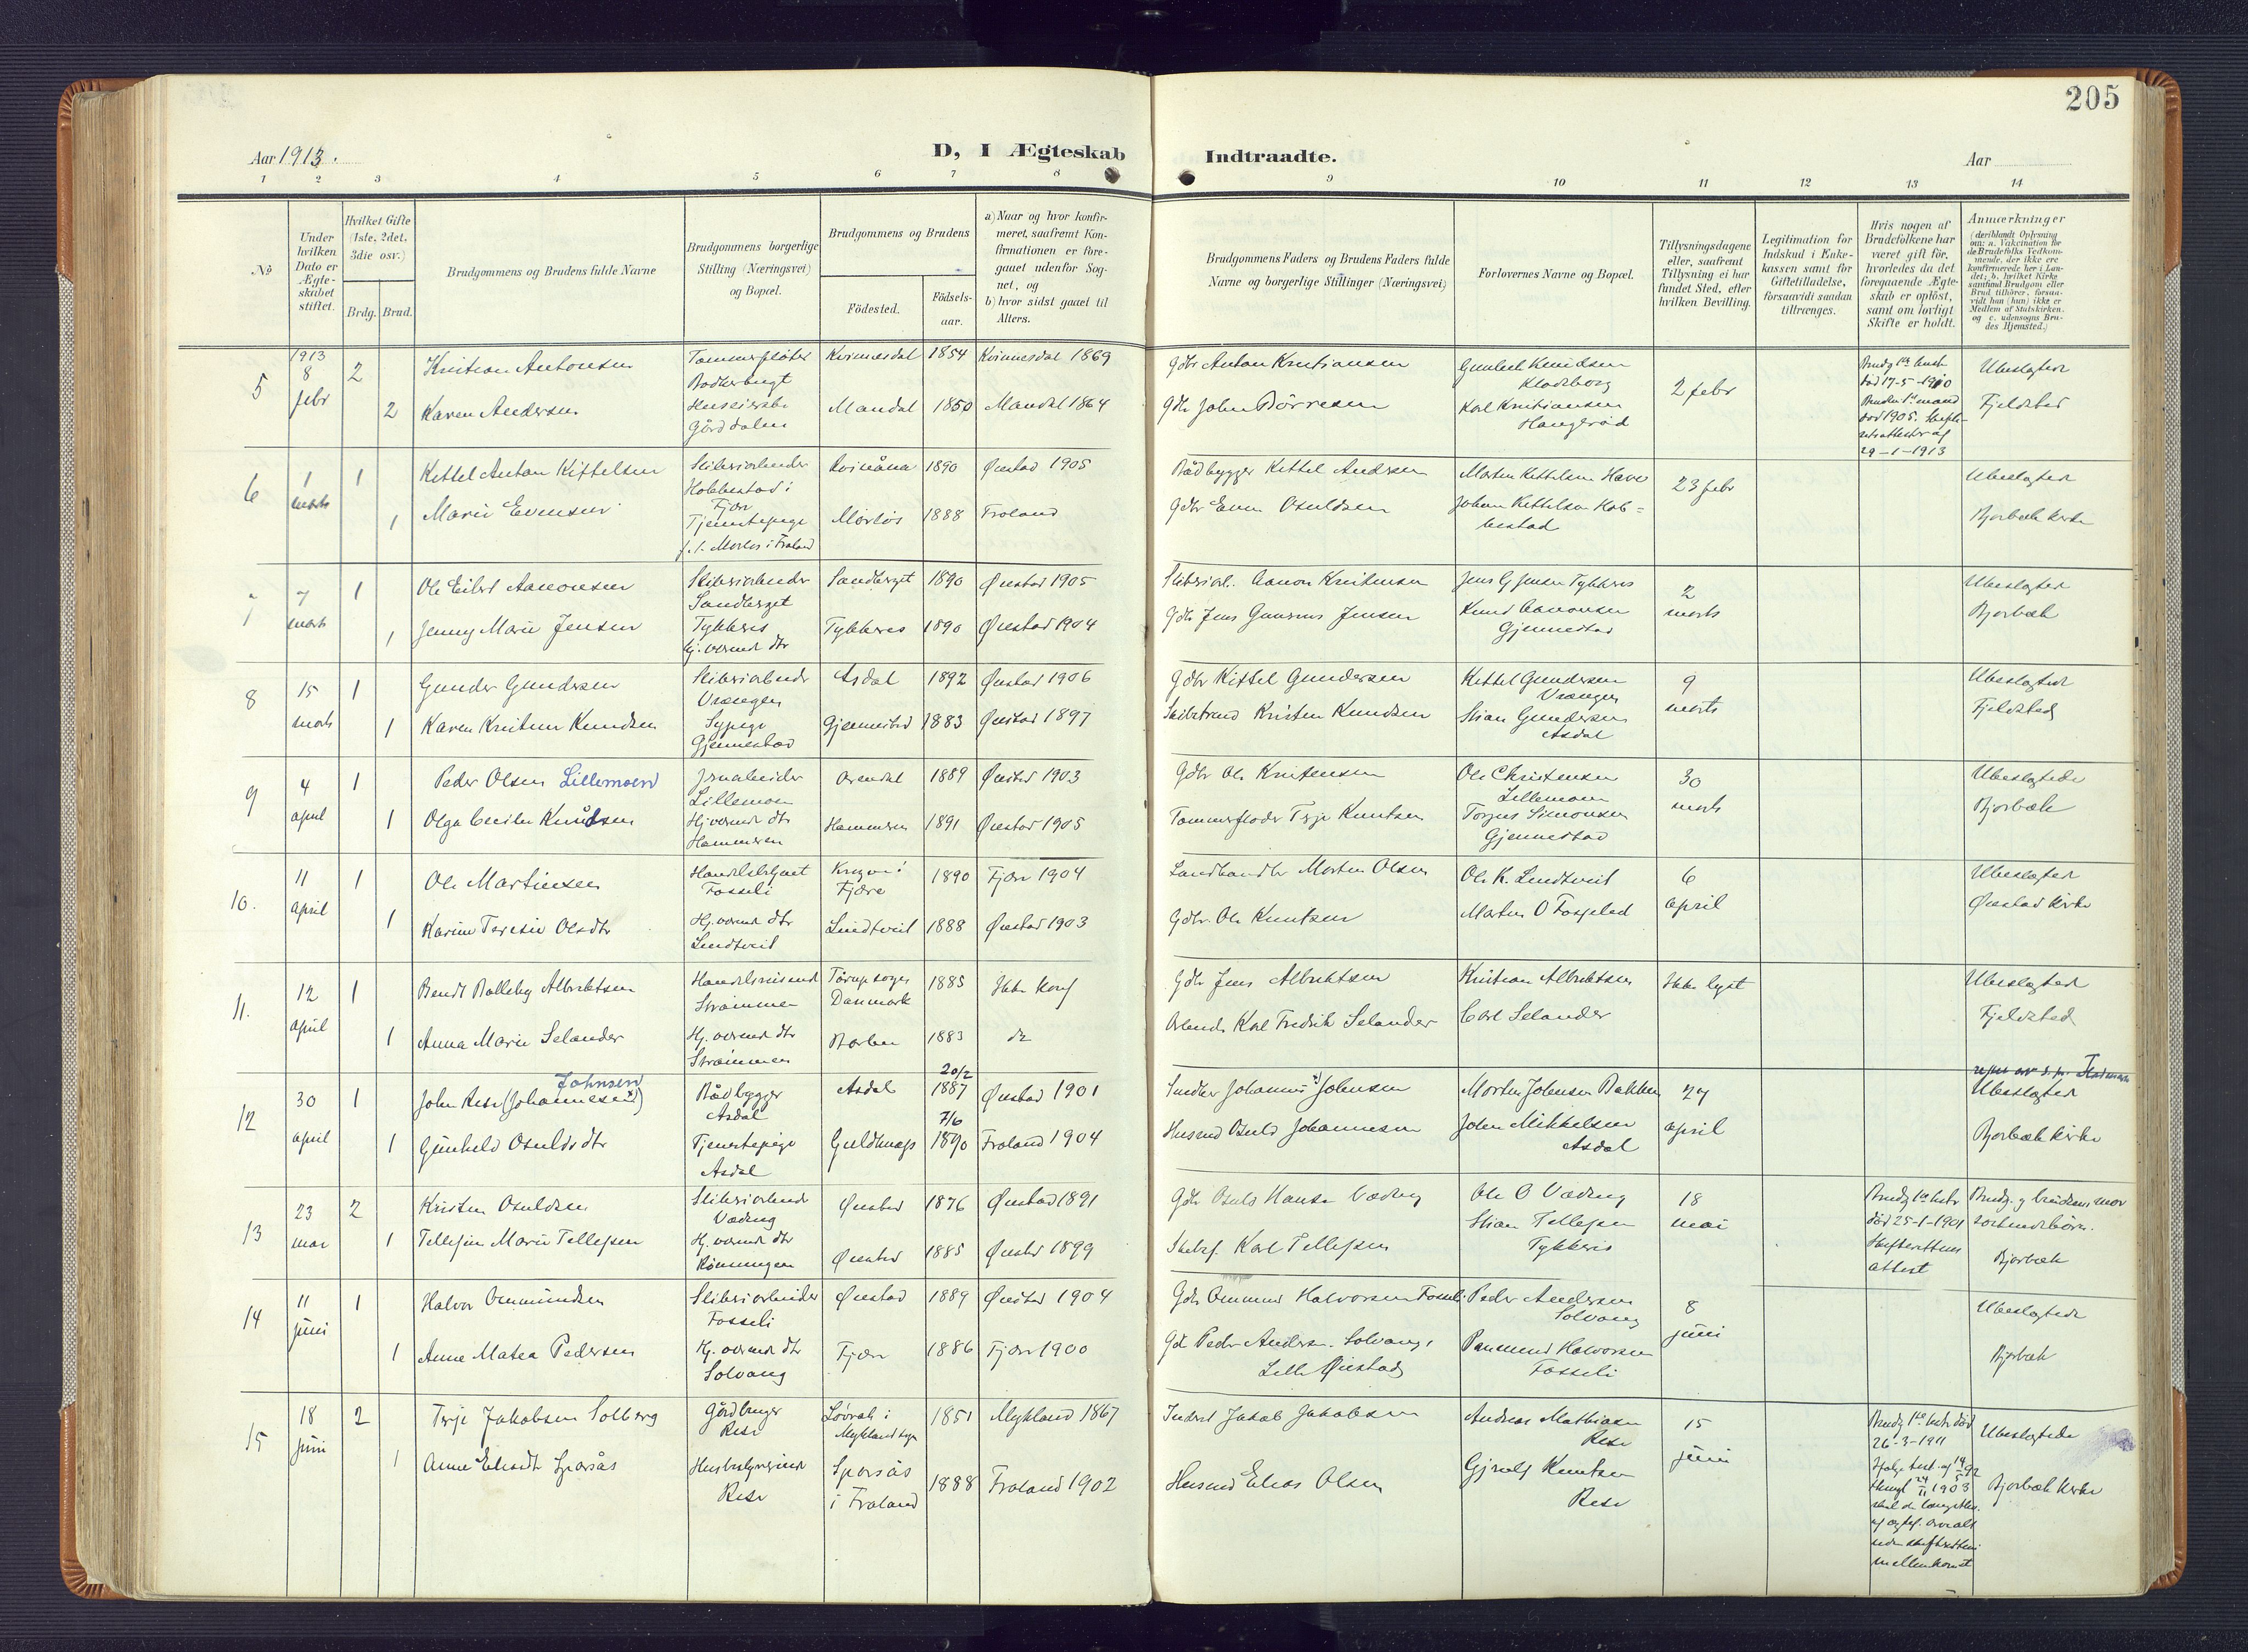 205
Aar 1913.
D, I Ægteskab Indtraadte.
Aar
1 2 3 4 5 6 7 8 9 10 11 12 13 14
No
Under
hvilken
Dato er
Ægte-
skabet
stiftet.
Hvilket Gifte
(1ste, 2det,
3die osv.)
Brdg. Brud.
Brudgommens og Brudens fulde Navne
Brudgommens borgerlige
Stilling (Næringsvei)
og Bopæl.
Brudgommens og Brudens
Fødested.
Fødsels-
aar.
a) Naar og hvor konfir-
meret, saafremt Kon-
firmationen er fore-
gaaet udenfor Sog-
net, og
b) hvor sidst gaaet til
Alters.
Brudgommens Faders og Brudens Faders fulde
Navne og borgerlige Stillinger (Næringsvei)
Forlovernes Navne og Bopæl.
Tillysningsdagene
eller, saafremt
Tillysning ei har
fundet Sted, efter
hvilken Bevilling.
Legitimation for
Indskud i Enke-
kassen samt for
Giftetilladelse,
forsaavidt saadan
tiltrænges.
Hvis nogen af
Brudefolkene har
været gift før,
hvorledes da det
foregaaende Ægte-
skab er opløst,
samt om lovligt
Skifte er holdt.
Anmærkninger
(deriblandt Oplysning
om: a. Vakcination for
de Brudefolks Vedkom-
mende, der ikke ere
konfirmerede her i Lan-
det; b. hvilket Kirke
samfund Brudgom eller
Brud tilhører, forsaa-
vidt han (hun) ikke er
Medlem af Statskirken.
og c. udensogns Bru-
des Hjemsted.)
5
1913
8
febr
2
Kristian Antonsen
Kvinnesdal 1854 Kvinnesdal 1869
Gdbr Anton Kristiansen
Gunbert Knudsen
2 febr
Brudg 1ste hustr
død 17-5-1910
Ubeslægtede
2
Karen Andersen
Mandal 1850 Mandal 1864
Gdb John Børresen
Karl Kristiansen
Haugerød
død 1905. Skifte-
retsattester af
29-1-1913
Fjeldsted
6
1
marts
1
Kittel Anton Kittelsen
Skibsarbeider
Hobbestad i
Fjære
1890 Øiestad 1905
Baadbygger Kittel Andersen
Morten Kittelsen Have
23 febr
Ubeslægtede
1
Marie Evensen
Tjenestepige
1888 Froland
Gdbr Even Osuldsen
Johan Kittelsen Hob=
bestad
Bjorbæk kirke
7
marts
1
Ole Eilert Aanonsen
Skibsarbeider
Sandberget
Sandberget 1890 Øiestad 1905
Skibsarb. Aanon Kristensen
Jens G Jensen Tykkeres
2
marts
Ubeslægtede
1
Jenny Marie Jensen
Tykkeres
hj. værende dtr
Tykkeres 1890 Øiestad 1904
Gdb Jens Gunerius Jensen
Knud Aanonsen
Gjennestad
Bjorbæk
8
15
marts
1
Gunder Gundersen
Skibsarbeider
Vrængen
Asdal 1892 Øiestad 1906
Gdbr Kittel Gundersen
Kittel Gundersen
Vrængen
9
marts
Ubeslægtede
1
Karen Kristine Knudsen
Sypige
Gjennestad
Gjennestad 1883 Øiestad 1897
Kristen Knudsen
Stian Gundersen
Asdal
Fjeldsted
9
4
april
1
Peder Olsen Lillemoen
Lillemoen
Arendal 1889 Øiestad 1903
Gdbr Ole Kristensen
Ole Christensen
Lillemoen
30
marts
Ubeslægtede
1
Olga Cecilie Knudsen
Hj. værende dtr
Hammeren
Hammeren 1891 Øiestad 1905
Tømmerfløder Terje Knutsen
Torjus Simonsen
Gjennestad
Bjorbæk
10.
11
april
1
Ole Martinsen
Fosseli
Fjære 1890 Fjære 1904
Landhandler Morten Olsen
Ole K. Lindtveit
6
april
Ubeslægtede
1
Karine Teresie Olsdtr
Hj. værende dtr
Lindtveit
Lindtveit 1888 Øiestad 1903
Gdbr. Ole Knutsen
Morten O Fosseli
Øiestad kirke
11.
12
april
1
Bendt Balleby Albrektsen
Handelsreisende
Strømmen
Danmark
1885 Ikke konf
Gdb Jens Albrektsen
Kristian Albrektsen
Ikke lyst
Ubeslægtede
1
Anna Marie Selander
Hj. værende dtr
Strømmen
1883 do
Arbeid. Karl Fredrik Selander
Carl Selander
Fjeldsted
12
30
april
1
Johnsen
John Rese (Johannesen*)
Baadbygger
Asdal
Asdal 20/2 1887 Øiestad 1901
Smedbr Johannes*) Johnsen
Morten Johnsen Bakken
27
april
Ubeslægtede
1
Gunhild Osuldsdtr
Tjenestepige
Asdal
Guldknap 7/6 1890 Froland 1904
Husmd Osuld Johannesen
John Mikkelsen
Asdal
Bjorbæk kirke
13
23
mai
2
Kristen Osuldsen
Skibsarbeid
Væding
Øiestad 1876 Øiestad 1891
Gdb Osuld Hansen Væding
Ole O Væding
18
mai
Brudg 1ste hustr
død 25-1-1901
Skifterettens
attest
Brudg. og brudens mor
søskendebørn.
1
Tellefine Marie Tellefsen
Hj. værende dtr
Rønningen
Øiestad 1885 Øiestad 1899
Karl Tellefsen
Stian Tellefsen
Tykkeris
Bjorbæk
14
11
juni
1
Halvor Osmundsen
Skibsarbeider
Fosseli
Øiestad 1889 Øiestad 1904
Gdb Osmund Halvorsen Fosseli
Peder Andersen
Solvang
8
juni
Ubeslægtede
1
Anne Matea Pedersen
Hj. værende dtr
Solvang
Fjære 1886 Fjære 1900
Gdb Peder Anders. Solvang,
Lille Øiestad
Osmund Halvorsen
Fosseli
Bjorbæk
15
18
juni
2
Terje Jakobsen Solberg
Gårdbruger
Rese
Løvrak i
Mykland sogn
1851 Mykland 1867
Jakob Jakobsen
Andreas Mathiasen
Rese
15
juni
Brudg 1ste hustr død
26-3-1911
Ubeslægtede
1
Anne Elisdt Sporsås
Husbestyrerinde
Rese
Sporsås
i Froland
1888 Froland 1902
Husmd Elias Olsen
Gjeruld Knutsen
Rese
Bjorbæk kirke